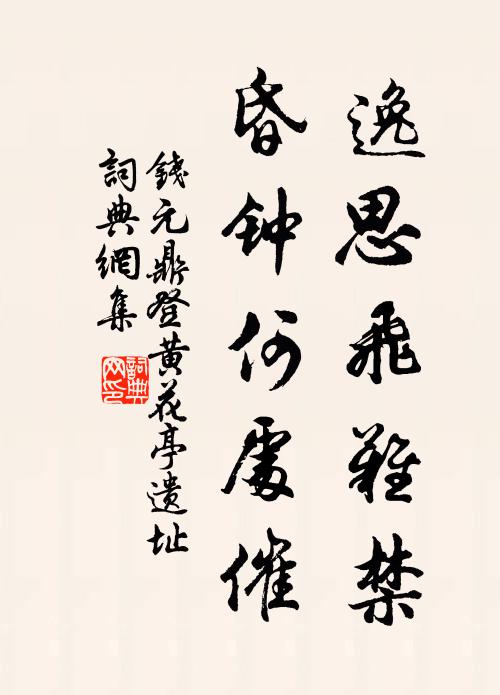 逸思飛難禁
昏钟何處催
錢元鼎登黄花亭遗址
詞典網集
詞典
网印